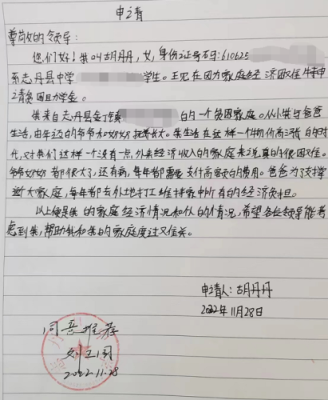 申请
尊敬的领导:
您们好!我叫胡丹丹,女,身份证号码:610625
系志丹县中学 学生。王见在因为家庭经济困难特申
请贫困助学金。
我来自志丹县金 的一个贫困家庭。从小我与爸爸
生活,由年迈的爷爷和奶奶抚养长大。我生活在这样一个物价高涨的时
代,对我们这样一个没有一点外来经济收入的家庭来说真的很困难。
爷爷奶奶都很大了,还有病,每年都需要支付高额的费用。爸爸为了支撑
这个大家庭,每年都去外地打工维持家中所有的经济负担。
以上便是我的家庭经济情况和我的情况,希望各位领导能考
虑到我,帮助我和我的家庭度过难关。
申请人:胡丹丹
2022年11月28日
同意推荐
2022-11.28